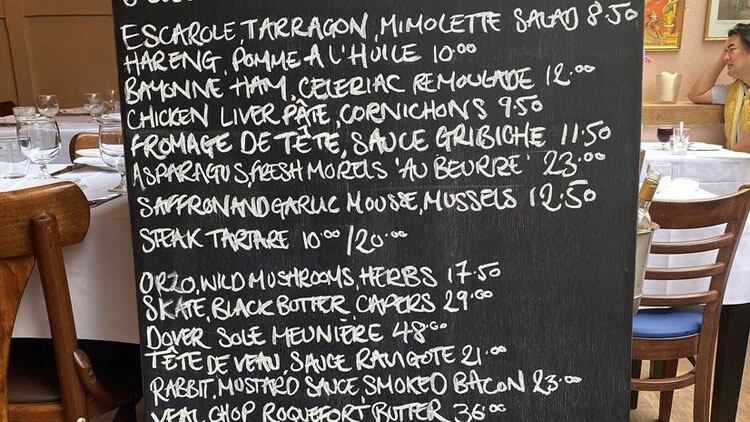 ESCAROLE, TARRAGON, MIMOLETTE SALAD 8.50
HARENG, POMME A L'HUILE 10.00
BAYONNE HAM, CELERIAC REMOULADE 12.00
CHICKEN LIVER PÂTE, CORNICHONS 9.50
FROMAGE DE TÊTE, SAUCE GRIBICHE 11.50
ASPARAGUS, FRESH MORELS 'AU BEURRE' 23.00
SAFFRON AND GARLIC MOUSSE, MUSSELS 12.50
STEAK TARTARE 10.00/20.00
ORZO, WILD MUSHROOMS, HERBS 17.50
SKATE, BLACK BUTTER, CAPERS 29.00
DOVER SOLE MEUNIÈRE 48.00
TÊTE DE VEAU, SAUCE RAVIGOTE 21.00
RABBIT, MUSTARD SAUCE, SMOKED BACON 23.00
VEAL CHOP ROQUEFORT BUTTER 36.00